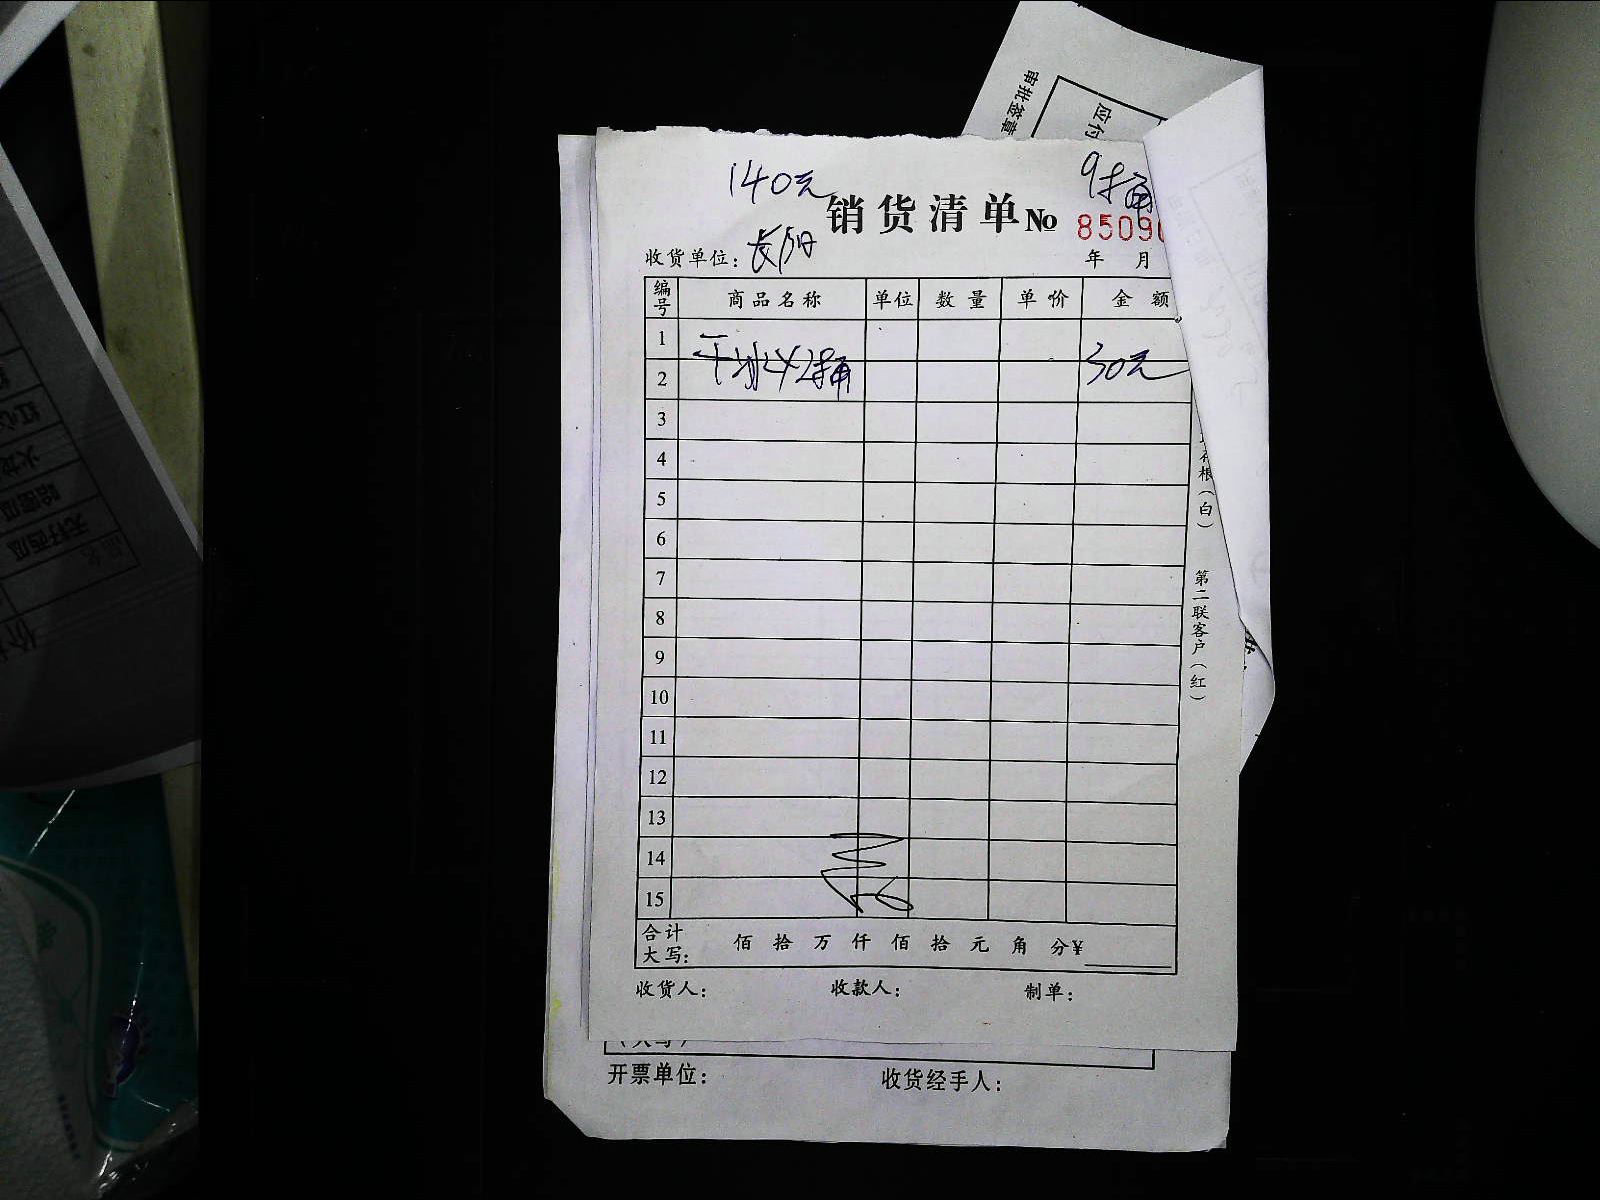 审批签章
应付
140元
9桶
销货清单 No 8509
收货单位: 长阳
年 月
编号 商品名称 单位 数量 单价 金额
1
2 30元
3
4
5
6
7
8
9
10
11
12
13
14
15
合计大写: 佰 拾 万 仟 佰 拾 元 角 分 ¥
收货人: 收款人: 制单:
存根(白)
第二联客户(红)
开票单位: 收货经手人:
品名
无籽西瓜
哈密瓜
火龙
红心